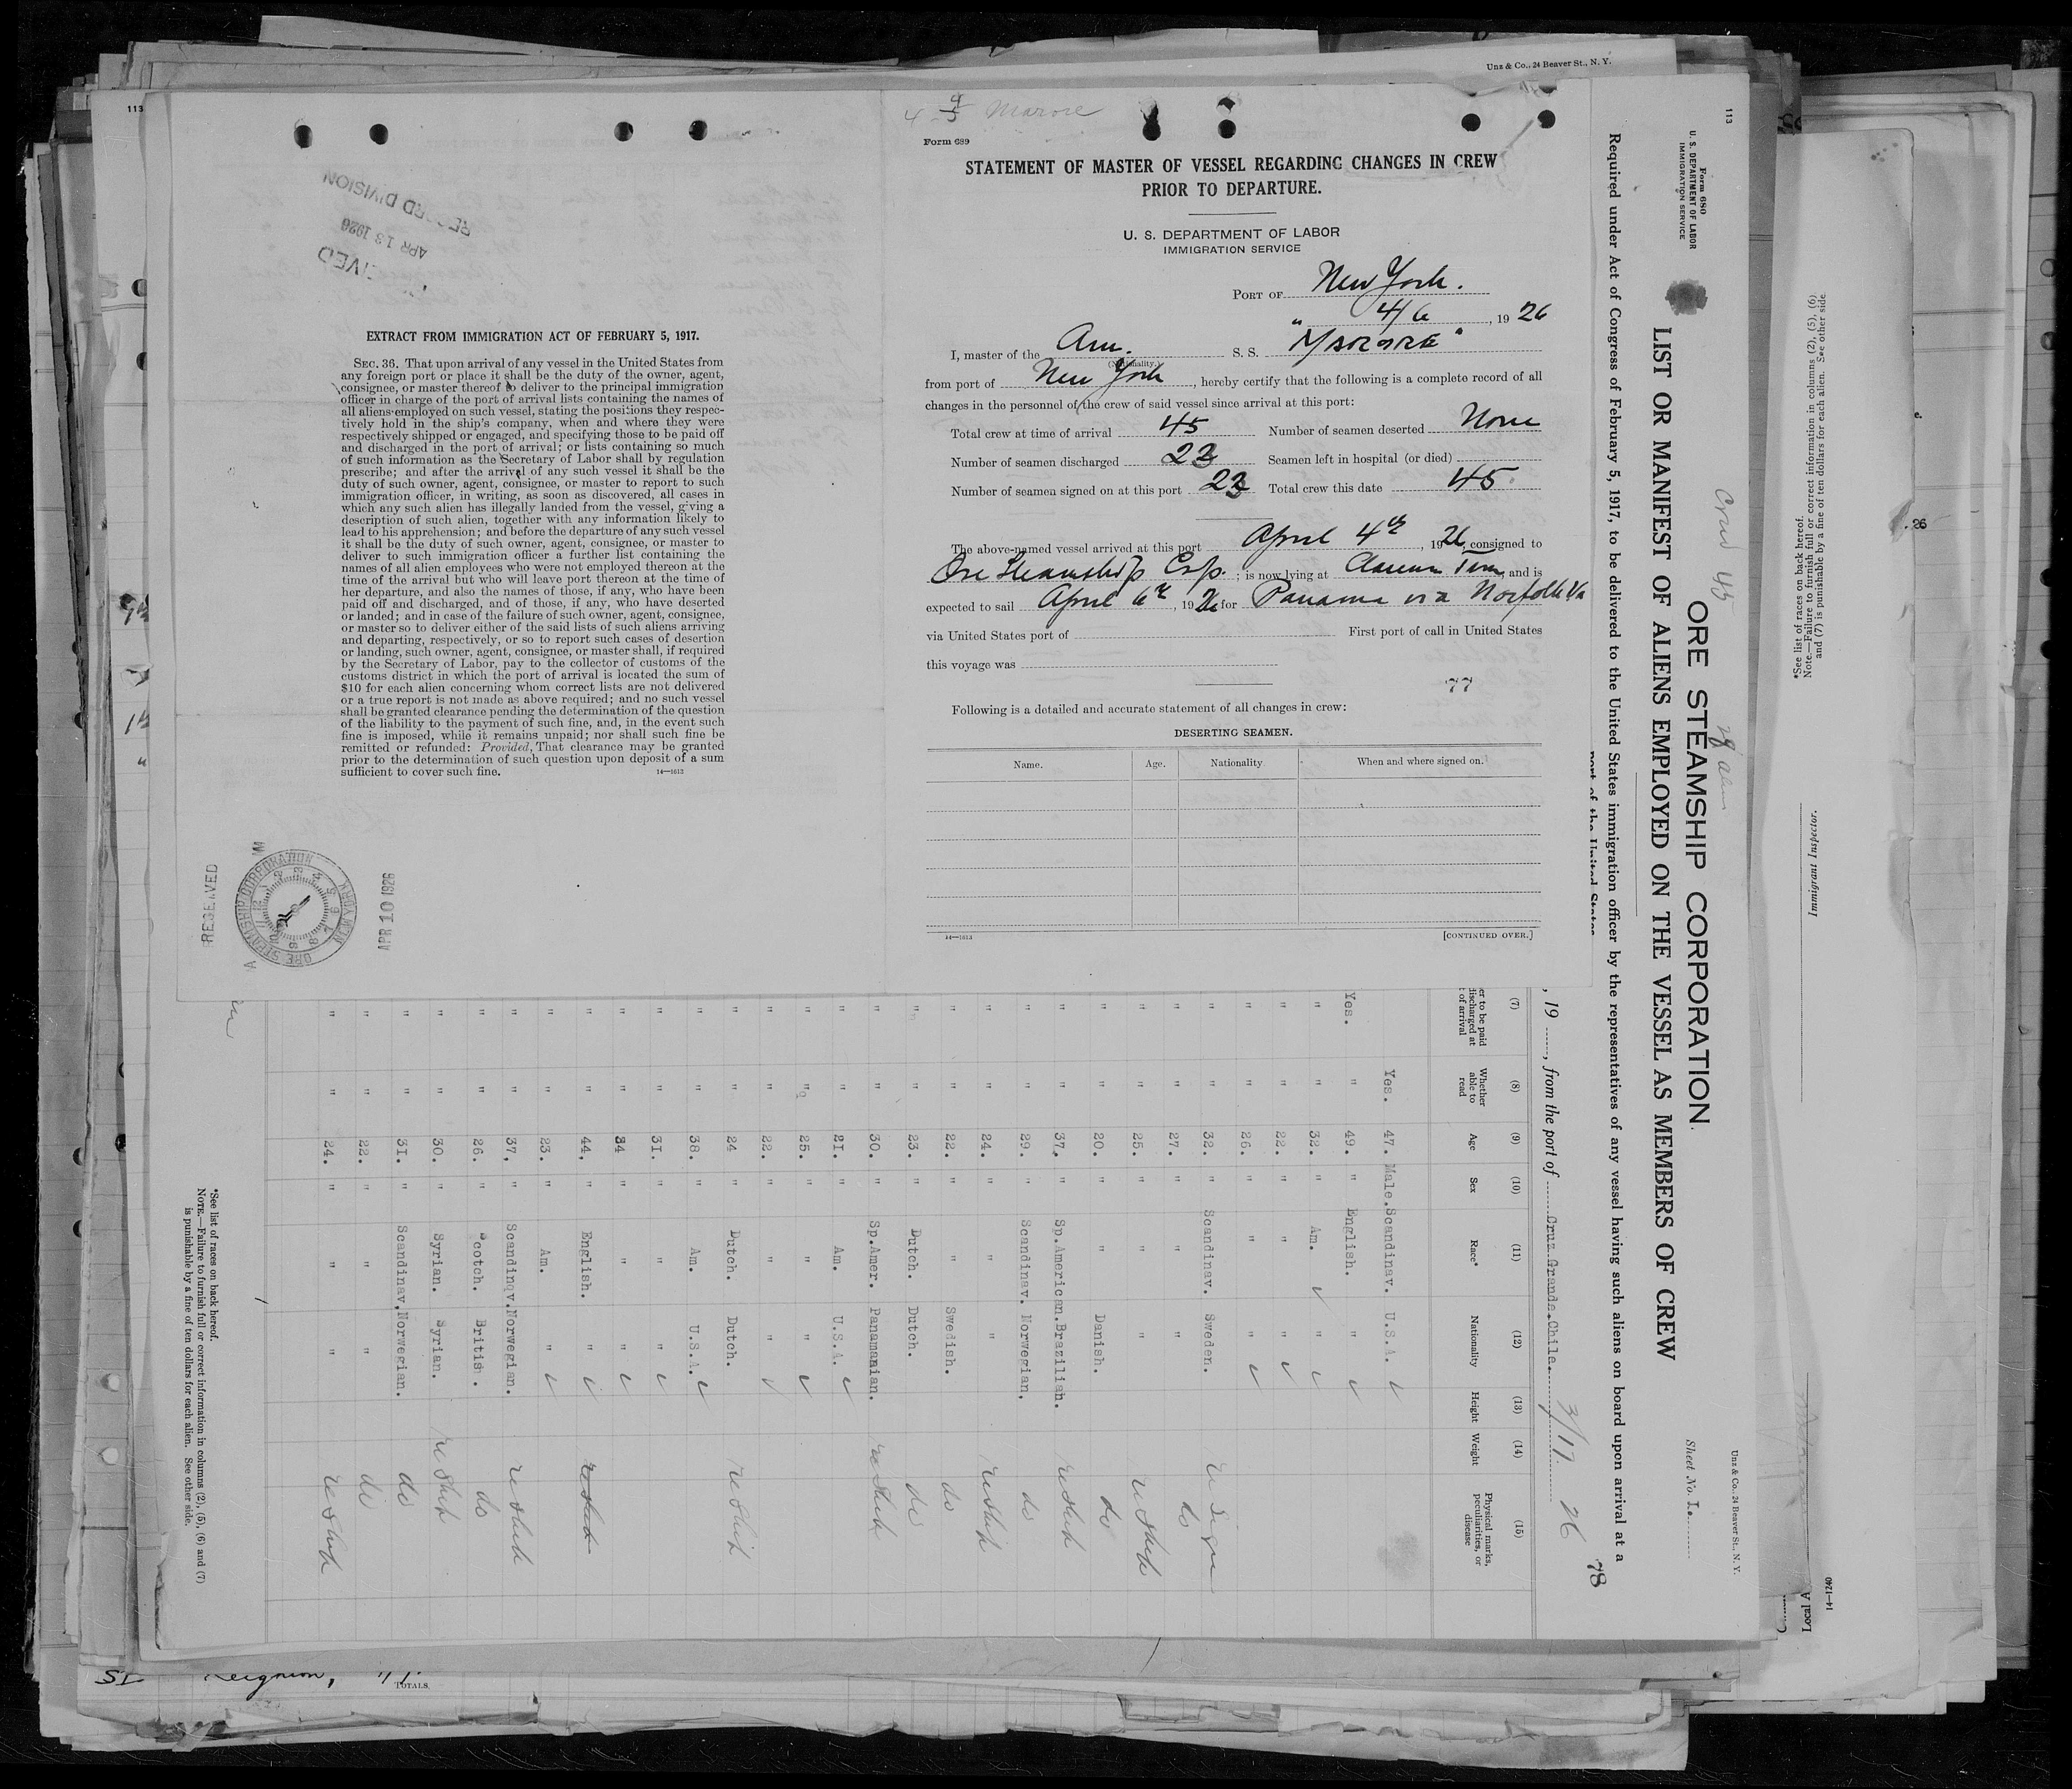 Unz & Co., 24 Beaver St., N. Y.
113
RECEIVED
APR 13 1926
RECORD DIVISION
EXTRACT FROM IMMIGRATION ACT OF FEBRUARY 5, 1917.
SEC. 36. That upon arrival of any vessel in the United States from
any foreign port or place it shall be the duty of the owner, agent,
consignee, or master thereof to deliver to the principal immigration
officer in charge of the port of arrival lists containing the names of
all aliens employed on such vessel, stating the positions they respec-
tively hold in the ship's company, when and where they were
respectively shipped or engaged, and specifying those to be paid off
and discharged in the port of arrival; or lists containing so much
of such information as the Secretary of Labor shall by regulation
prescribe; and after the arrival of any such vessel it shall be the
duty of such owner, agent, consignee, or master to report to such
immigration officer, in writing, as soon as discovered, all cases in
which any such alien has illegally landed from the vessel, giving a
description of such alien, together with any information likely to
lead to his apprehension; and before the departure of any such vessel
it shall be the duty of such owner, agent, consignee, or master to
deliver to such immigration officer a further list containing the
names of all alien employees who were not employed thereon at the
time of the arrival but who will leave port thereon at the time of
her departure, and also the names of those, if any, who have been
paid off and discharged, and of those, if any, who have deserted
or landed; and in case of the failure of such owner, agent, consignee,
or master so to deliver either of the said lists of such aliens arriving
and departing, respectively, or so to report such cases of desertion
or landing, such owner, agent, consignee, or master shall, if required
by the Secretary of Labor, pay to the collector of customs of the
customs district in which the port of arrival is located the sum of
$10 for each alien concerning whom correct lists are not delivered
or a true report is not made as above required; and no such vessel
shall be granted clearance pending the determination of the question
of the liability to the payment of such fine, and, in the event such
fine is imposed, while it remains unpaid; nor shall such fine be
remitted or refunded: Provided, That clearance may be granted
prior to the determination of such question upon deposit of a sum
sufficient to cover such fine.
14—1613
RECEIVED
ORE STEAMSHIP CORPORATION
NEW YORK
APR 10 1926
4-4/5 Marore
Form 689
STATEMENT OF MASTER OF VESSEL REGARDING CHANGES IN CREW
PRIOR TO DEPARTURE.
U. S. DEPARTMENT OF LABOR
IMMIGRATION SERVICE
PORT OF New York.
4/6, 19 26
I, master of the Am. S. S. "MARORE"
(Nationality.)
from port of New York, hereby certify that the following is a complete record of all
changes in the personnel of the crew of said vessel since arrival at this port:
Total crew at time of arrival 45 Number of seamen deserted None
Number of seamen discharged 23 Seamen left in hospital (or died)
Number of seamen signed on at this port 23 Total crew this date 45
The above-named vessel arrived at this port April 4th, 1926, consigned to
Ore Steamship Corp.; is now lying at Claremt Term, and is
expected to sail April 6th, 1926 for Panama via Norfolk Va
via United States port of First port of call in United States
this voyage was
77
Following is a detailed and accurate statement of all changes in crew:
DESERTING SEAMEN.
Name. Age. Nationality. When and where signed on.
14—1613
[CONTINUED OVER.]
113
Form 680
U. S. DEPARTMENT OF LABOR
IMMIGRATION SERVICE
Crew 45
ORE STEAMSHIP CORPORATION.
LIST OR MANIFEST OF ALIENS EMPLOYED ON THE VESSEL AS MEMBERS OF CREW
Required under Act of Congress of February 5, 1917, to be delivered to the United States immigration officer by the representatives of any vessel having such aliens on board upon arrival at a
port of the United States
Unz & Co., 24 Beaver St., N. Y.
Sheet No. I.
78
, 19 , from the port of Cruz Grande, Chile. 3/17 26
(7) (8) (9) (10) (11) (12) (13) (14) (15)
er to be paid discharged at of arrival
Whether able to read
Age
Sex
Race*
Nationality
Height
Weight
Physical marks, peculiarities, or disease
Yes. 47. Male. Scandinav. U.S.A. ✓
Yes. " 49. " English. " ✓
" " 32. " Am. ✓ " ✓
" " 22. " " " ✓
" " 26. " " " ✓
" " 32. " Scandinav. Sweden. re Sign
" " 27. " " " do
" " 25. " " " re Ship
" " 20. " " Danish. do
" " 37. " Sp.American. Brazilish. re Ship
" " 29. " Scandinav. Norwegian. do
" " 24. " " " re Ship
" " 22. " " Swedish. do
" " 23. " Dutch. Dutch. do
" " 30. " Sp.Amer. Panamanian. re Ship
" " 21. " Am. U.S.A. ✓
" " 25. " " " ✓
" " 22. " " " ✓
" " 24 " Dutch. Dutch. re Ship
" " 38. " Am. U.S.A. ✓
" " 31. " " " ✓
" " 34 " " " ✓
" " 44. " English. " ✓ re Ship
" " 23. " Am. " ✓
" " 37. " Scandinqv. Norwegian. re Ship
" " 26. " Scotch. British. do
" " 30. " Syrian. Syrian. re Ship
" " 31. " Scandinav. Norwegian. do
" " 22. " " " do
" " 24. " " " re Ship
*See list of races on back hereof.
NOTE.—Failure to furnish full or correct information in columns (2), (5), (6) and (7)
is punishable by a fine of ten dollars for each alien. See other side.
*See list of races on back hereof.
Note.—Failure to furnish full or correct information in columns (2), (5), (6)
and (7) is punishable by a fine of ten dollars for each alien. See other side
Immigrant Inspector.
. 26
Local A
14—1240
TOTALS